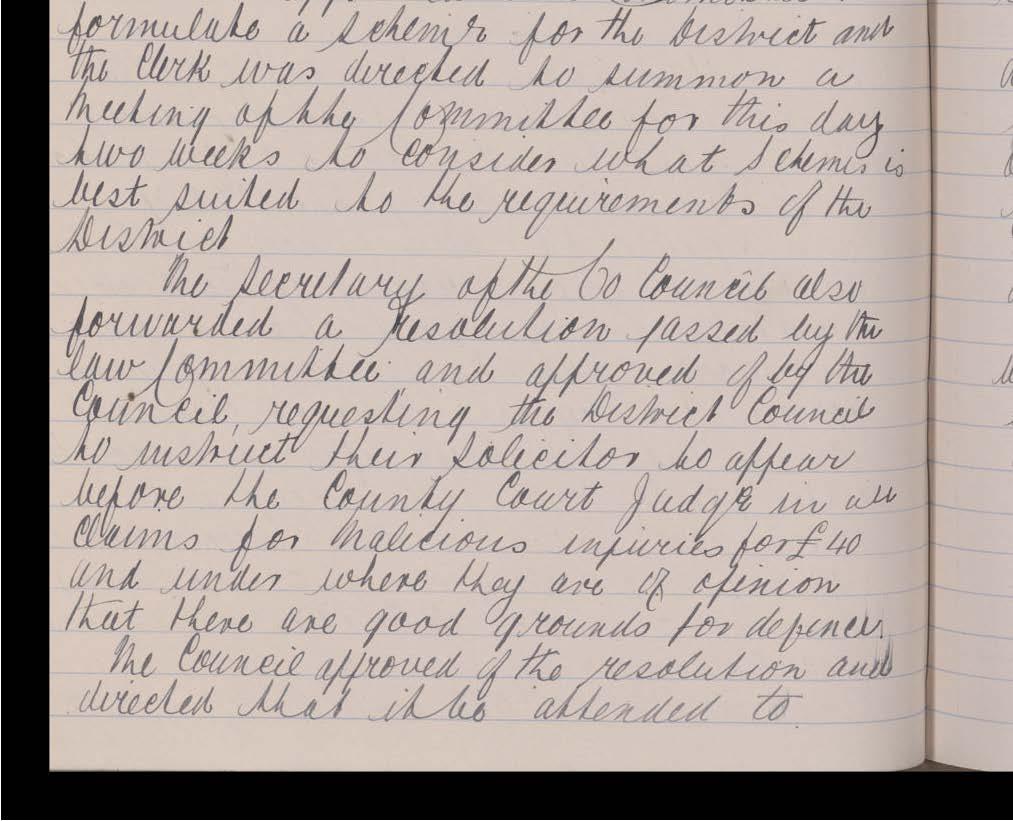 formulate a scheme for the District and
the Clerk was directed to summon a
Meeting of the Committee for this day
two weeks to consider what scheme is
best suited to the requirements of the
District
The Secretary of the Co Council also
forwarded a resolution passed by the
law Committee and approved of by the
Council, requesting the District Council
to instruct their Solicitor to appear
before the County Court Judge in all
Claims for Malicious injuries for £40
and under where they are of opinion
that there are good grounds for defence.
The Council approved of the resolution and
directed that it be attended to.